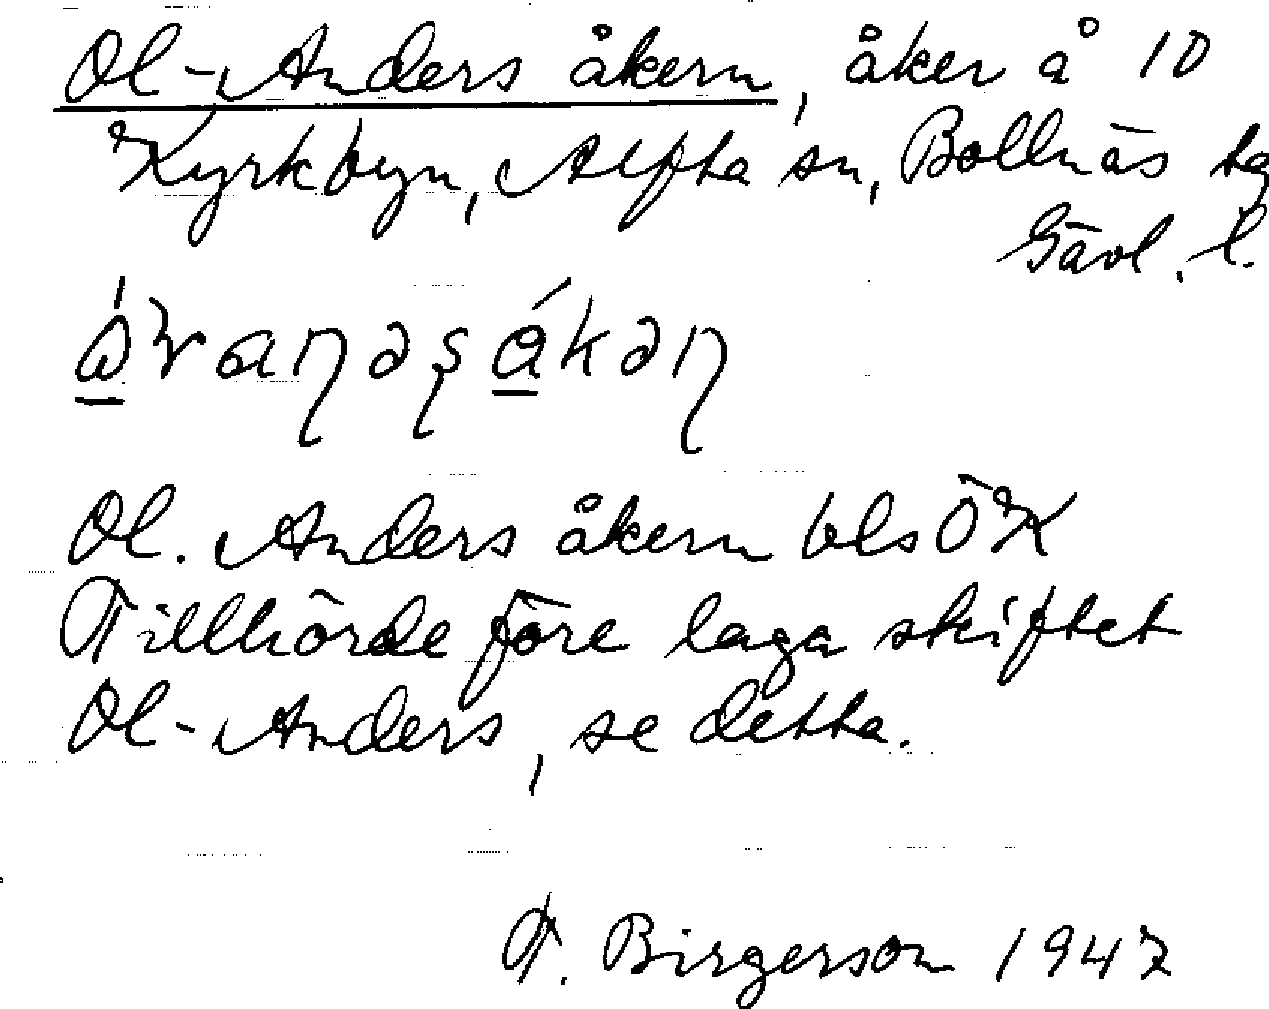 Ol-Anders åkern, åker å 10
Kyrkbyn, Alfta sn, Bollnäs tg
Gävl. l.
Ol. Anders åkern bls ÖK
Tillhörde före laga skiftet
Ol-Anders, se detta.
T. Birgerson 1947